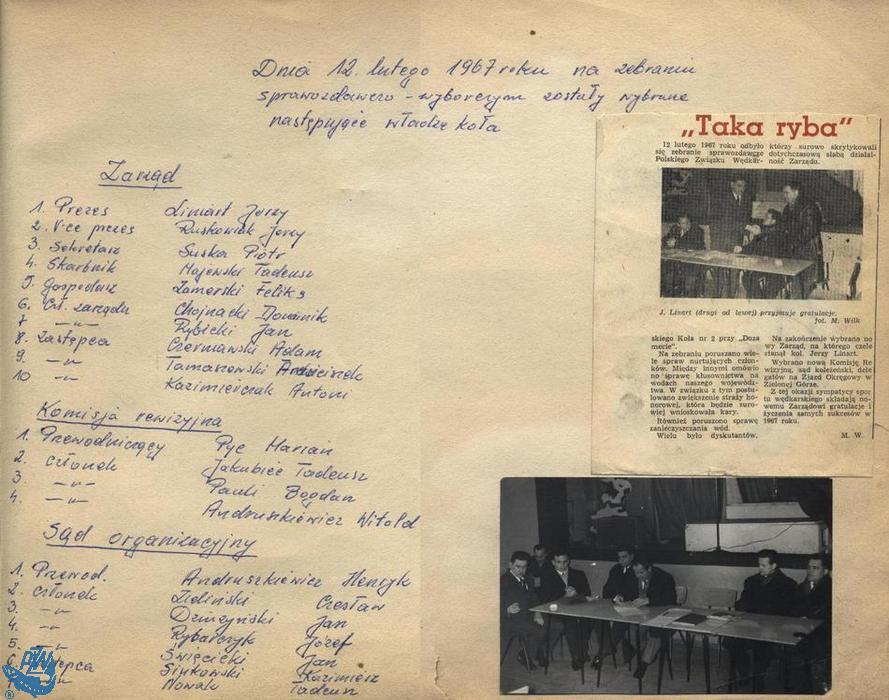 Dnia 12. lutego 1967 roku na zebraniu
sprawozdawczo-wyborczym zostały wybrane
następujące władze koła
Zarząd
1. Prezes Liniart Jerzy
2. Vice prezes Ruskowiak Jerzy
3. Sekretarz Suska Piotr
4. Skarbnik Majewski Tadeusz
5. Gospodarz Zamerski Feliks
6. Czł. zarządu Chojnacki Dominik
7 —„— Rybicki Jan
8. Zastępca Czermawski Adam
9. —„— Tamanowski
10 —„— Kazimierczak Antoni
Komisja rewizyjna
1. Przewodniczący Pyc Marian
2. członek Jakubiec Tadeusz
3. —„— Pauli Bogdan
4. —„— Andruszkiewicz Witold
Sąd organizacyjny
1. Przewod. Andruszkiewicz Henryk
2. członek Zieliński Czesław
3. —„— Jan
4. —„— Rybarczyk Józef
5. —„— Święcicki Jan
Sinkowski Kazimierz
Nowak Tadeusz
„Taka ryba"
12 lutego 1967 roku odbyło
się zebranie sprawozdawcze
Polskiego Związku Wędkar-
którzy surowo skrytykowali
dotychczasową słabą działal-
ność Zarządu.
J. Linart (drugi od lewej) przyjmuje gratulacje.
fot. M. Wilk
skiego Koła nr 2 przy „Doza
mecie".
Na zebraniu poruszano wie-
le spraw nurtujących człon-
ków. Między innymi omówio
no sprawę kłusownictwa na
wodach naszego wojewódz-
twa. W związku z tym postu-
lowano zwiększenie straży ho-
norowej, która będzie suro-
wiej wnioskowała kary.
Również poruszono sprawę
zanieczyszczania wód.
Wielu było dyskutantów,
Na zakończenie wybrano no
wy Zarząd, na którego czele
stanął kol. Jerzy Linart.
Wybrano nową Komisję Re
wizyjną, sąd koleżeński, dele
gatów na Zjazd Okręgowy w
Zielonej Górze.
Z tej okazji sympatycy spor
tu wędkarskiego składają no-
wemu Zarządowi gratulacje i
życzenia samych sukcesów w
1967 roku.
M. W.